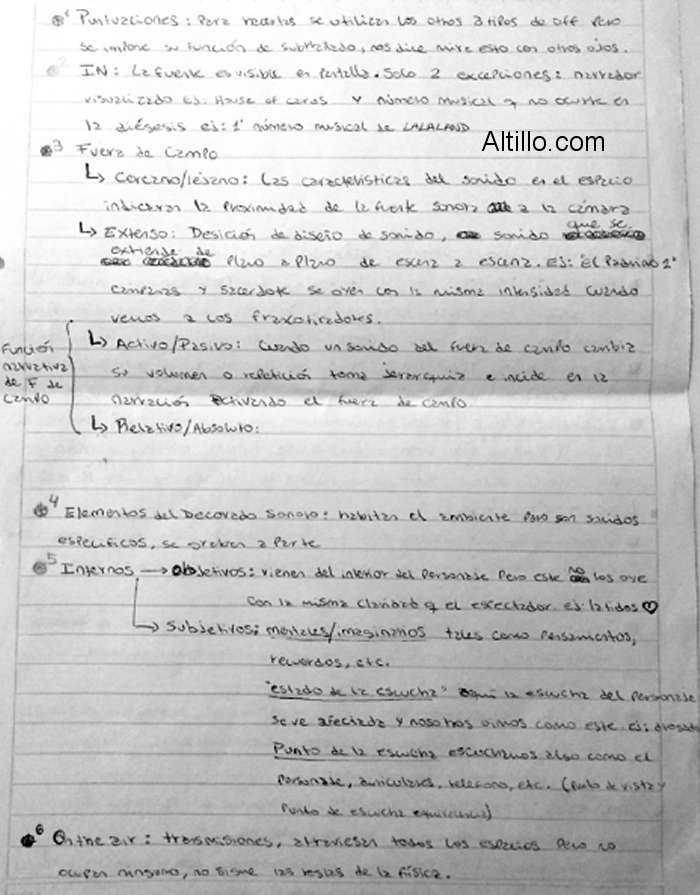 1 Puntuaciones: Para hacerlas se utilizan los otros 3 tipos de off pero
se impone su función de subrayado, nos dice mire esto con otros ojos.
2 IN: La fuente es visible en pantalla. Solo 2 excepciones: narrador
visualizado Ej. House of cards y número musical q no ocurre en
la diégesis ej: 1° número musical de LALALAND
Altillo.com
3 Fuera de Campo
↳ Cercano/lejano: Las características del sonido en el espacio
indicaran la proximidad de la fuente sonora a la cámara
↳ Extenso: Desición de diseño de sonido, sonido que se
extiende de Plano a Plano de escena a escena. Ej: "El Padrino 2"
campanas y sacerdote se oyen con la misma intensidad cuando
vemos a los francotiradores.
Función
narrativa
de F de
Campo
↳ Activo/Pasivo: Cuando un sonido del fuera de campo cambia
su volumen o repetición toma jerarquia e incide en la
narración activando el fuera de campo
↳ Relativo/Absoluto:
4 Elementos del Decorado Sonoro: habitan el ambiente pero son sonidos
especificos, se graban a parte
5 Internos → objetivos: vienen del interior del personaje pero este no los oye
con la misma claridad q el espectador ej: latidos ♡
→ Subjetivos: mentales/imaginarios tales como pensamientos,
recuerdos, etc.
"estado de la escucha" aqui la escucha del personaje
se ve afectada y nosotros oimos como este ej: drogado
Punto de la escucha escuchamos algo como el
personaje, auriculares, telefono, etc. (punto de vista y
punto de escucha equivalencia)
6 On the air: transmisiones, atraviesan todos los espacios pero no
ocupan ninguno, no sigue las reglas de la física.